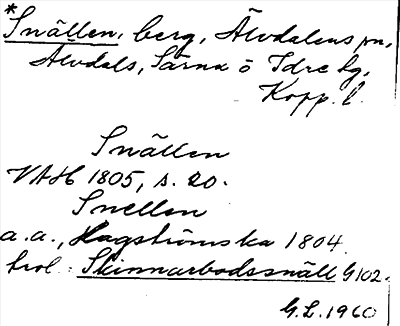 *Snällen, berg, Älvdalens sn,
Älvdals, Särna o Idre tg,
Kopp. l.
Snällen
VAH 1805, s. 20.
Snellen
a. a., Hagströmska 1804.
trol. Skinnarbodssnäll G102.
G.L. 1960